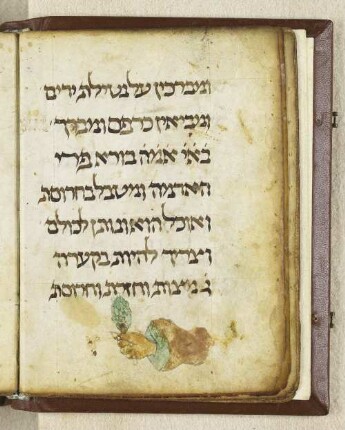 ומברכין על נטילת ידים
ומביאין כרפס ומברך
בא״י אמ״ה בורא פרי
האדמה ומטבל בחרוסת
ואוכל הוא ונותן לכולם
וצריך להיות בקערה
ג׳ מצות וחזרת וחרוסת